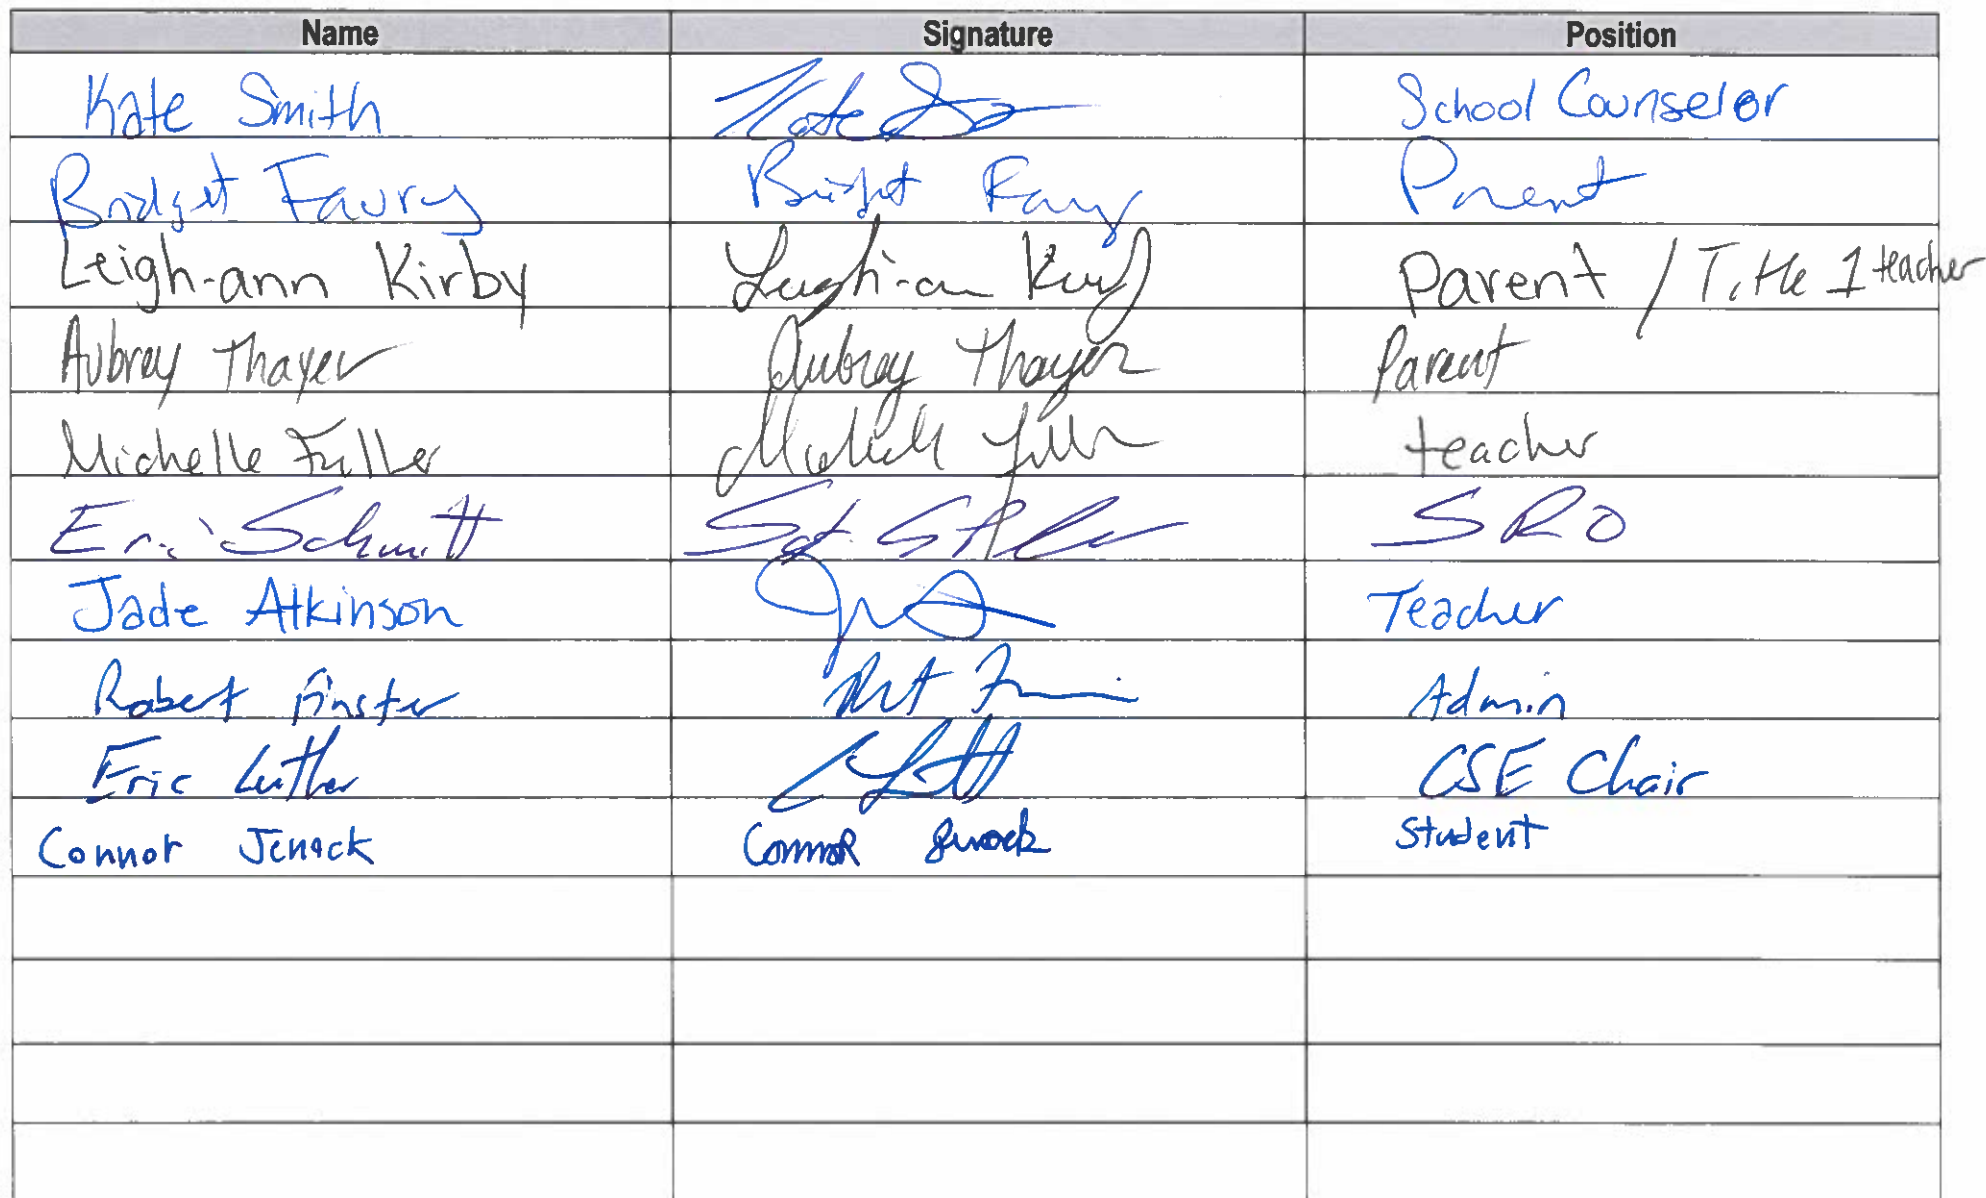 Name Signature Position
Kate Smith Kate School Counselor
Bridget Faury Parent
Leigh-ann Kirby Leigh-ann Kirby Parent / Title 1 teacher
Aubrey Thayer Aubrey Thayer Parent
Michelle Fuller Michelle Fuller teacher
Eric Schmitt Sgt. SRO
Jade Atkinson Teacher
Robert Finster Admin
Eric Luther CSE Chair
Connor Jenack Connor Jenack Student